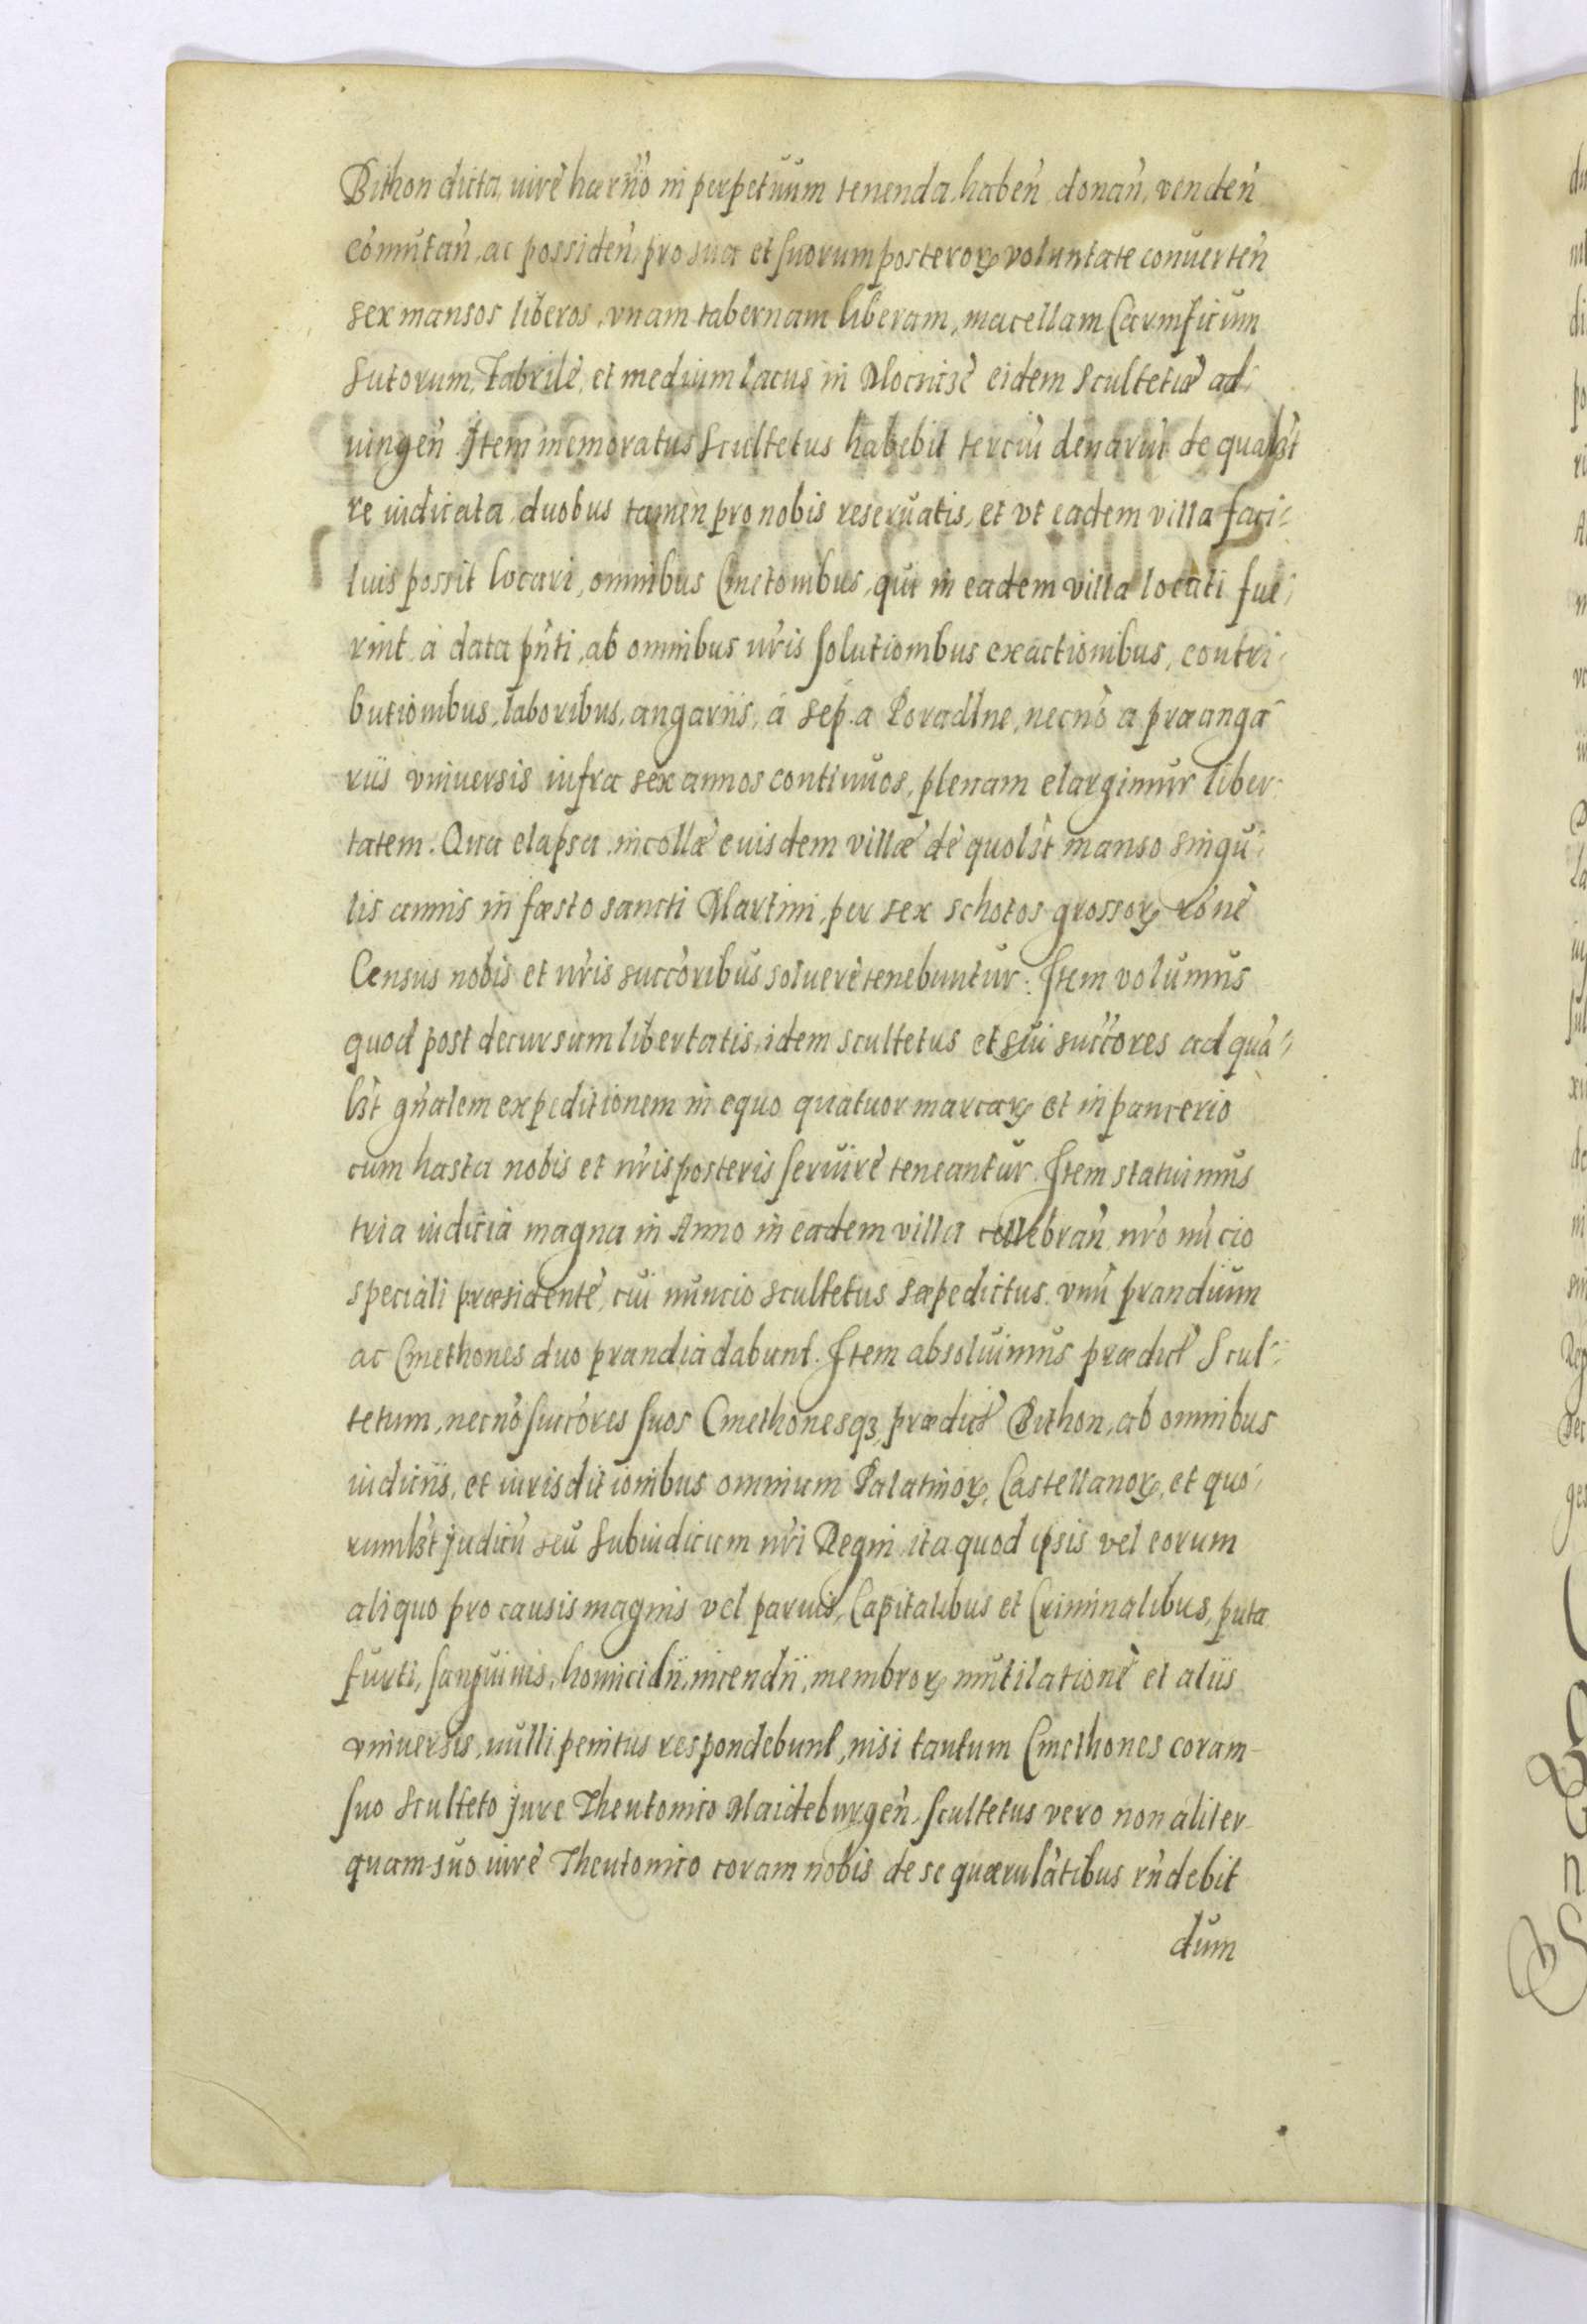 Bithon dicta, iure haern̄o in perpetuum tenenda, haben̄ donan̄, venden̄
com̄utan̄, ac possiden̄, pro sua et suorum posterorꝫ voluntate conuerten̄
sex mansos liberos, vnam tabernam liberam, macellam Carnificum
Sutorum, Fabrile, et medium lacus in Mocnise eidem Scultetiæ ad-
iungen̄ Item memoratus Scultetus habebit terciū denariū de qualibt
re iudicata, duobus tamen pro nobis reseruatis, et vt eadem villa faci-
lius possit locari, omnibus Cmetonibus, qui in eadem villa locati fue-
rint, á data pn̄ti, ab omnibus nr̄is solutionibus exactionibus, contri-
butionibus, laboribus, angariis, á Sep. a Poradlne, necno a præanga-
riis vniuersis infra sex annos continuos, plenam elargimur liber-
tatem. Qua elapsa, incollæ euisdem villæ de quolit manso singu-
lis annis in fæsto sancti Martini, per sex schotos grossorꝫ rōne
Census nobis et nr̄is succoribus soluere tenebuntur. Item volumus
quod post decursum libertatis, idem scultetus et sui succores ad qua-
lbt gn̄alem expeditionem in equo quatuor marcarꝫ et in pancerio
cum hasta nobis et nr̄is posteris seruire teneantur. Item statuimus
tria iudicia magna in Anno in eadem villa cellebran̄, nr̄o nūcio
speciali præsidente, cui nuncio scultetus sæpedictus, vnū prandium
ac Cmethones duo prandia dabunt. Item absoluimus prædict Scul-
tetum, necno succores suos Cmethonesqꝫ, prædict Bithon, ab omnibus
iudiciis, et iurisditionibus omnium Palatinorꝫ, Castellanorꝫ, et quo-
rumlbt judicū seu Subiudicum nr̄i Regni, ita quod ipsis vel eorum
aliquo pro causis magnis vel paruis, Capitalibus et Criminalibus, puta
furti, sanguinis, homicidii, incendii, membrorꝫ mutilatione et aliis
vniuersis, nulli penitus respondebunt, nisi tantum Cmethones coram
suo Sculteto jure Theutonico Maideburgen̄, Scultetus vero non aliter
quam suo iure Theutonico coram nobis de se quærulātibus rn̄debit
dum